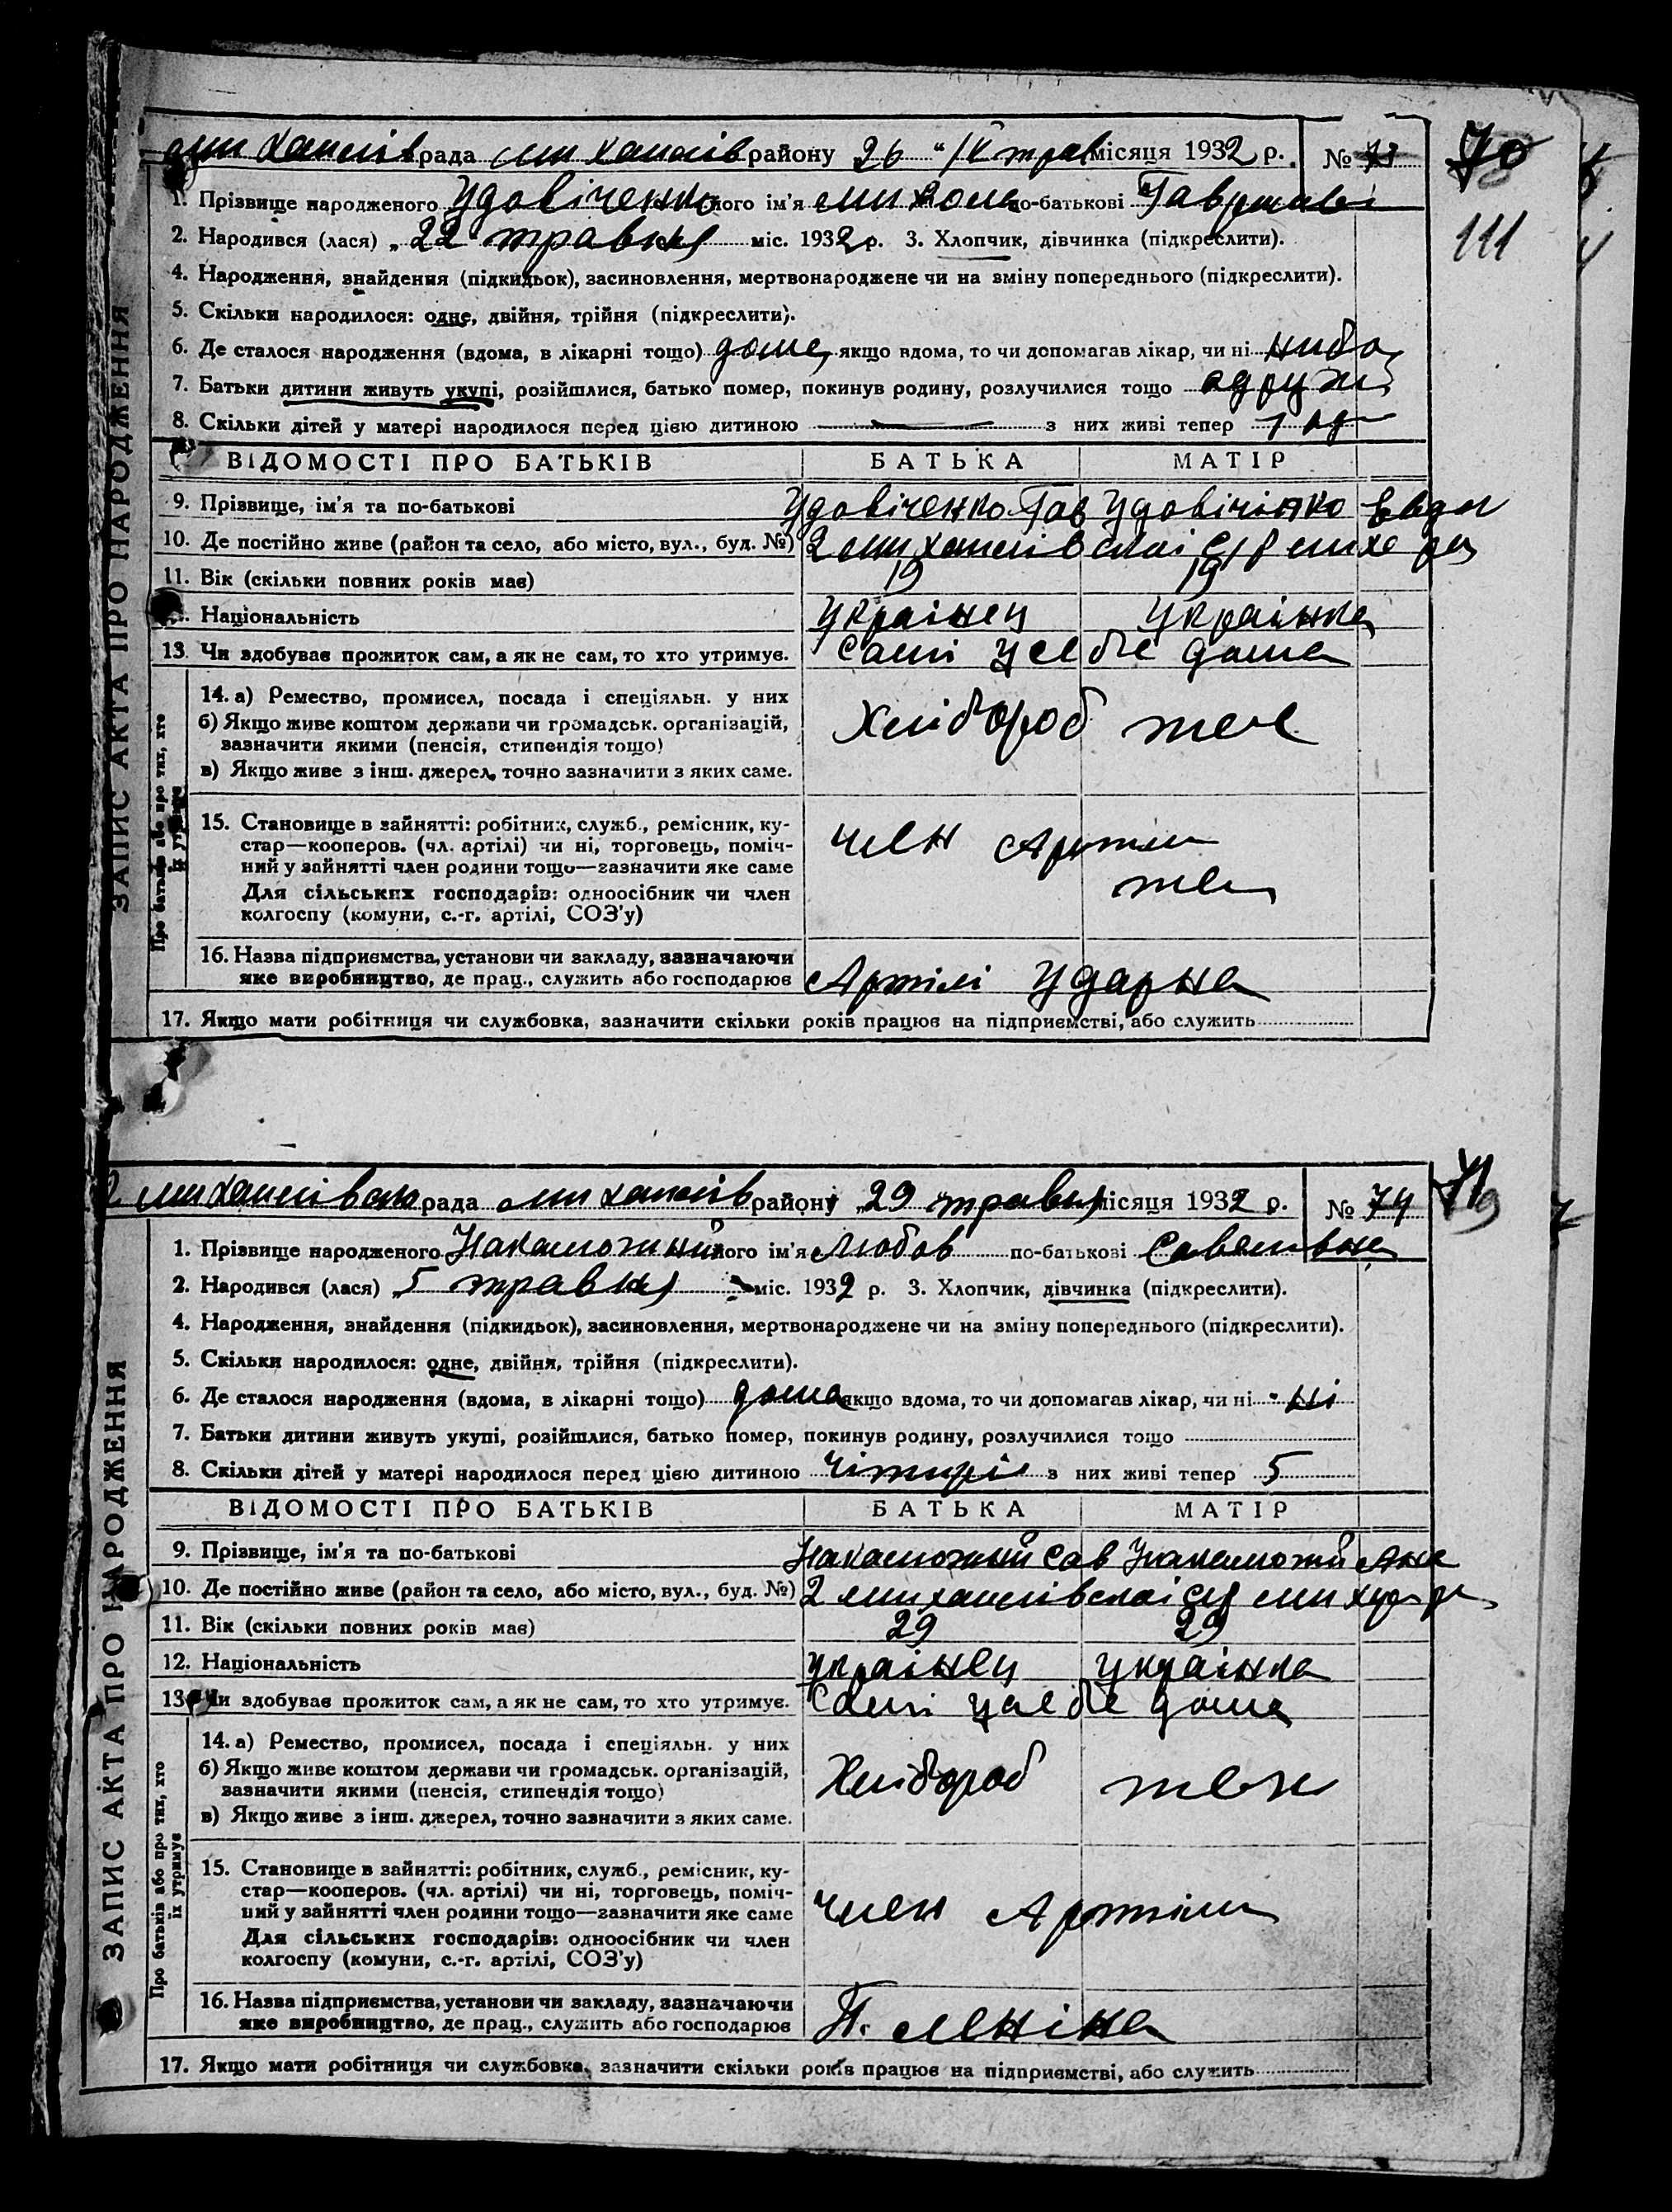 рада район 26 "/V трав місяця 1932 р. № 73
70
111
1. Прізвище народженого Удовіченко його ім'я Микола по-батькові Гаврилові
2. Народився (лася) „22" травня міс. 1932 р. 3. Хлопчик, дівчинка (підкреслити).
4. Народження, знайдення (підкидьок), засиновлення, мертвонароджене чи на зміну попереднього (підкреслити).
5. Скільки народилося: одне, двійня, трійня (підкреслити).
6. Де сталося народження (вдома, в лікарні тощо) дома, якщо вдома, то чи допомагав лікар, чи ні
7. Батьки дитини живуть укупі, розійшлися, батько помер, покинув родину, розлучилися тощо
8. Скільки дітей у матері народилося перед цією дитиною — з них живі тепер 1
ВІДОМОСТІ ПРО БАТЬКІВ БАТЬКА МАТІР
9. Прізвище, ім'я та по-батькові Удовіченко Гав Удовічінко Евдок
10. Де постійно живе (район та село, або місто, вул., буд. №) 2
11. Вік (скільки повних років має) 19 19
Національність Українец Українка
13. Чи здобуває прожиток сам, а як не сам, то хто утримує. Самі у себе дома
14. а) Ремество, промисел, посада і спеціяльн. у них
б) Якщо живе коштом держави чи громадськ. організацій,
зазначити якими (пенсія, стипендія тощо)
Хлібороб
в) Якщо живе з інш. джерел, точно зазначити з яких саме.
15. Становище в зайнятті: робітник, служб., ремісник, ку-
стар—кооперов. (чл. артілі) чи ні, торговець, поміч-
ний у зайнятті член родини тощо—зазначити яке саме
член Артили
Для сільських господарів: одноосібник чи член
колгоспу (комуни, с.-г. артілі, СОЗ'у)
16. Назва підприємства, установи чи закладу, зазначаючи
яке виробництво, де прац., служить або господарює Артілі Ударна
17. Якщо мати робітниця чи службовка, зазначити скільки років працює на підприємстві, або служить
ЗАПИС АКТА ПРО НАРОДЖЕННЯ
Про батьків або про тих, хто
їх утримує
2 рада району „29" травня місяця 1932 р. № 74
71
1. Прізвище народженого Накаложний його ім'я Любов по-батькові Савелівна
2. Народився (лася) „5 травня міс. 1932 р. 3. Хлопчик, дівчинка (підкреслити).
4. Народження, знайдення (підкидьок), засиновлення, мертвонароджене чи на зміну попереднього (підкреслити).
5. Скільки народилося: одне, двійня, трійня (підкреслити).
6. Де сталося народження (вдома, в лікарні тощо) дома якщо вдома, то чи допомагав лікар, чи ні ні
7. Батьки дитини живуть укупі, розійшлися, батько помер, покинув родину, розлучилися тощо
8. Скільки дітей у матері народилося перед цією дитиною чітирі з них живі тепер 5
ВІДОМОСТІ ПРО БАТЬКІВ БАТЬКА МАТІР
9. Прізвище, ім'я та по-батькові Накаложный Сав
10. Де постійно живе (район та село, або місто, вул., буд. №) 2
11. Вік (скільки повних років має) 29 29
12. Національність українец українка
13. Чи здобуває прожиток сам, а як не сам, то хто утримує. Самі у себе дома
14. а) Ремество, промисел, посада і спеціяльн. у них
б) Якщо живе коштом держави чи громадськ. організацій,
зазначити якими (пенсія, стипендія тощо)
Хлібороб
в) Якщо живе з інш. джерел, точно зазначити з яких саме.
15. Становище в зайнятті: робітник, служб., ремісник, ку-
стар—кооперов. (чл. артілі) чи ні, торговець, поміч-
ний у зайнятті член родини тощо—зазначити яке саме
член Артіли
Для сільських господарів: одноосібник чи член
колгоспу (комуни, с.-г. артілі, СОЗ'у)
16. Назва підприємства, установи чи закладу, зазначаючи
яке виробництво, де прац., служить або господарює Леніна
17. Якщо мати робітниця чи службовка, зазначити скільки років працює на підприємстві, або служить
ЗАПИС АКТА ПРО НАРОДЖЕННЯ
Про батьків або про тих, хто
їх утримує